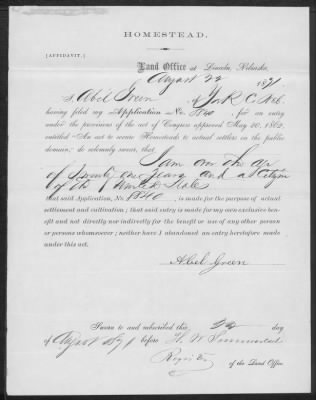 HOMESTEAD.
[AFFIDAVIT.]
Land Office at Lincoln, Nebraska,
August 22 1871
I, Abel Green of York Co Neb.
having filed my Application No. 8840, for an entry
under the provisions of the act of Congress approved May 20, 1862,
entitled "An act to secure Homesteads to actual settlers on the public
domain," do solemnly swear, that I am over the age
of Twenty one years and a Citizen
of the United States
that said Application, No. 8840, is made for the purpose of actual
settlement and cultivation; that said entry is made for my own exclusive bene-
fit and not directly nor indirectly for the benefit or use of any other person
or persons whomsoever; neither have I abandoned an entry heretofore made
under this act.
Abel Green
Sworn to and subscribed this 22 day
of August 1871 before
Register
of the Land Office